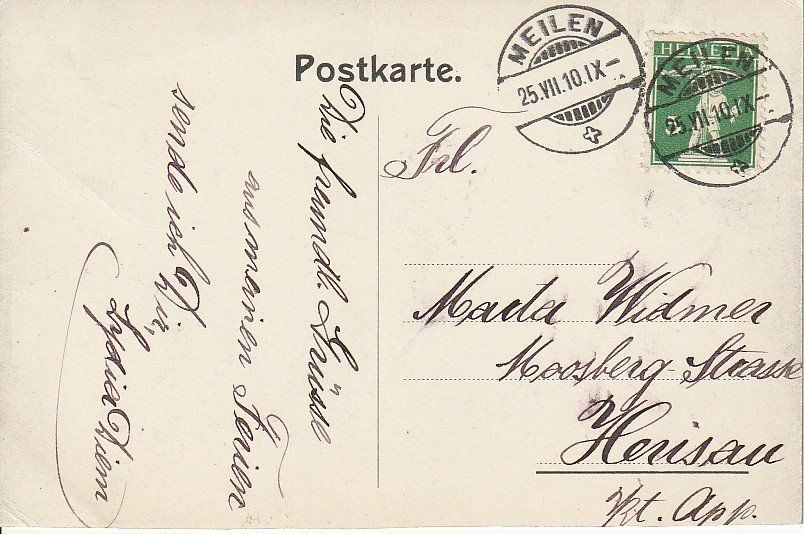 Postkarte.
MEILEN
25.VII.10.IX-
HELVETIA
MEILEN
25.VII.10.IX-
Die freundl. Grüsse
aus meinen Ferien
sende ich Dir,
Lydia Diem
Frl.
Marta Widmer
Moosberg-Strasse
Herisau
Kt. App.